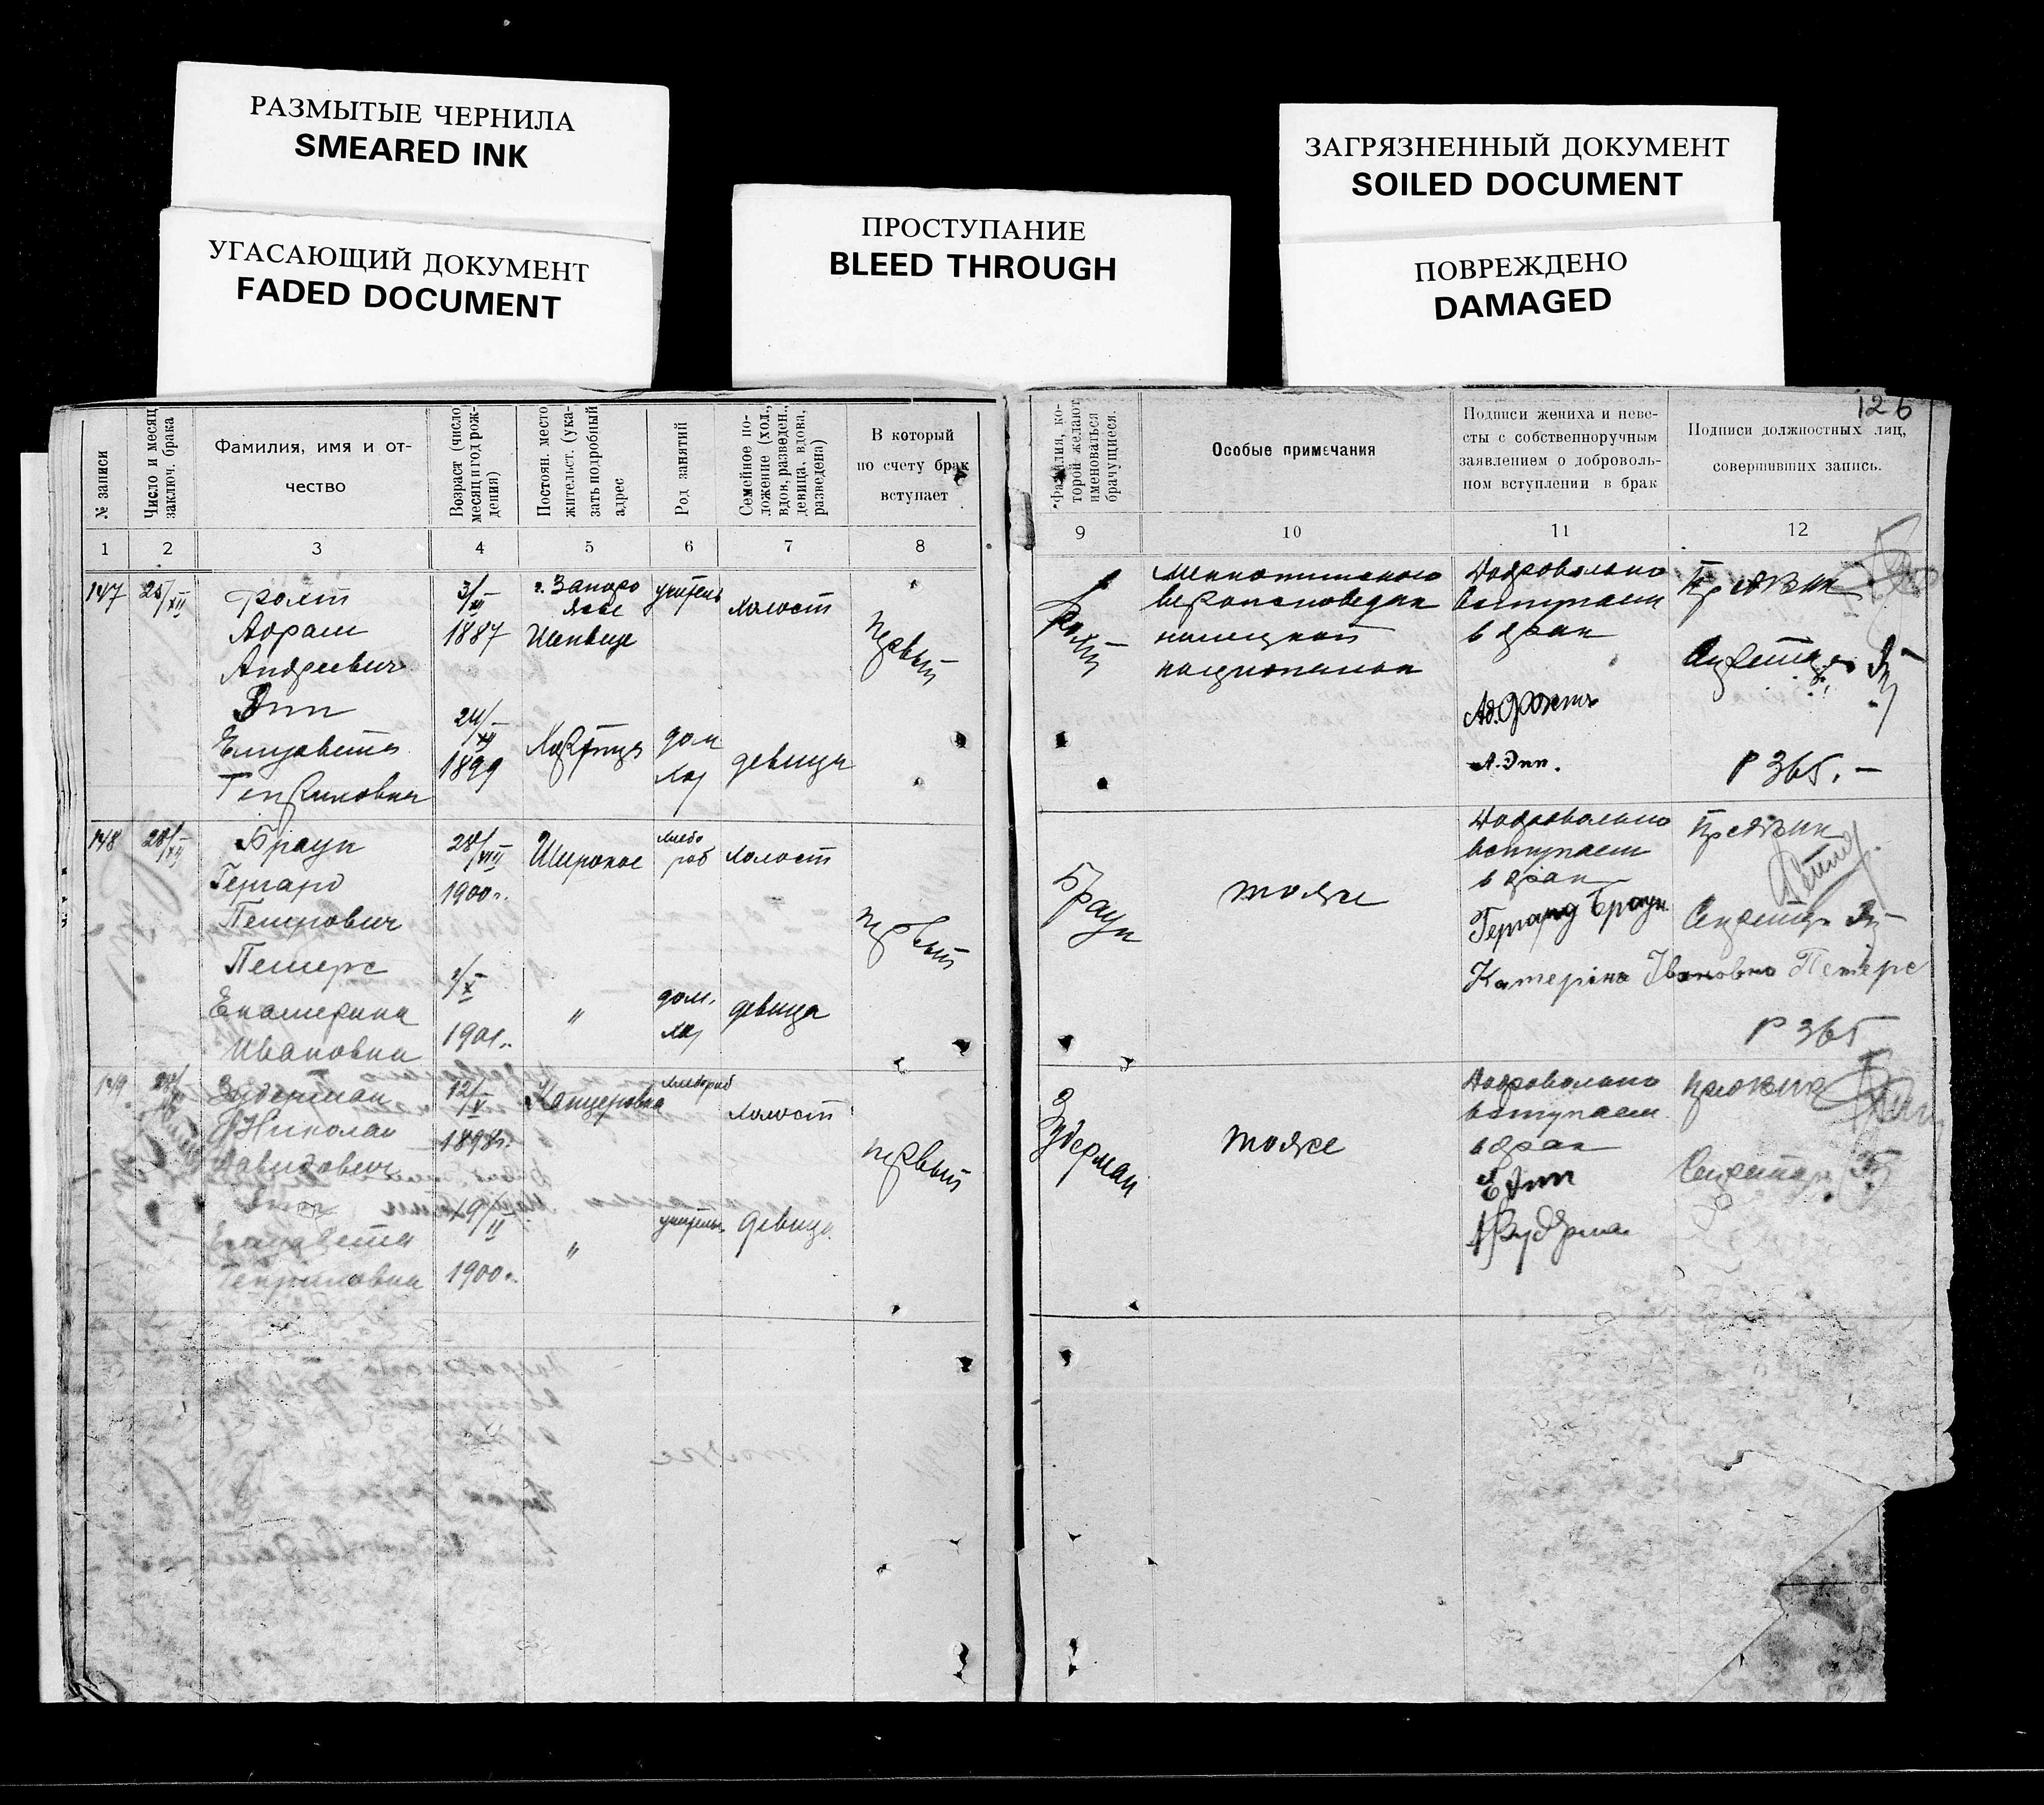 РАЗМЫТЫЕ ЧЕРНИЛА
SMEARED INK
УГАСАЮЩИЙ ДОКУМЕНТ
FADED DOCUMENT
ПРОСТУПАНИЕ
BLEED THROUGH
ЗАГРЯЗНЕННЫЙ ДОКУМЕНТ
SOILED DOCUMENT
ПОВРЕЖДЕНО
DAMAGED
126
№ записи
Число и месяц
заключ. брака
Фамилия, имя и от-
чество
Возраст (число
месяц и год рож-
дения)
Постоян. место
жительст. (ука-
зать подробный
адрес
Род занятий
Семейное по-
ложение (хол.,
вдов, разведен.,
девица, вдова,
разведена)
В который
по счету брак
вступает
Фамилия, ко-
торой желают
именоваться
брачущиеся.
Особые примечания
Подписи жениха и неве-
сты с собственноручным
заявлением о доброволь-
ном вступлении в брак
Подписи должностных лиц,
совершивших запись.
1 2 3 4 5 6 7 8
9 10 11 12
147
Абрам
Андреевич
Энп
Елизавета
3/XII
1887
24/XII
1899
г. Запоро
жье
учитель
холост
дом
хоз
девица
первый
вероисповедан
немецкой
Добровольно
вступаем
в брак
А. Энп.
Предвик
Р 365.-
148
28/XII
Браун
Гергард
Петрович
Петерс
Екатерина
Ивановна
28/VIII
1900г.
/X
1901г.
Широкое
"
хлебо
роб
холост
дом.
хоз
девица
первый
Браун
тоже
Добровольно
вступаем
в брак
Гергард Браун
Катеріна Івановна Петерс
Предвик
Секретарь
Р 365
149
Зудерман
Николай
Давидович
Елизавета
Генриховна
12/V
1898г.
19/II
1900г.
Канцеровка
"
хлебороб
холост
учитель.
девица
первый
Зудерман
тоже
Добровольно
вступаем
в брак
Е Энп
Предвик
Секретарь